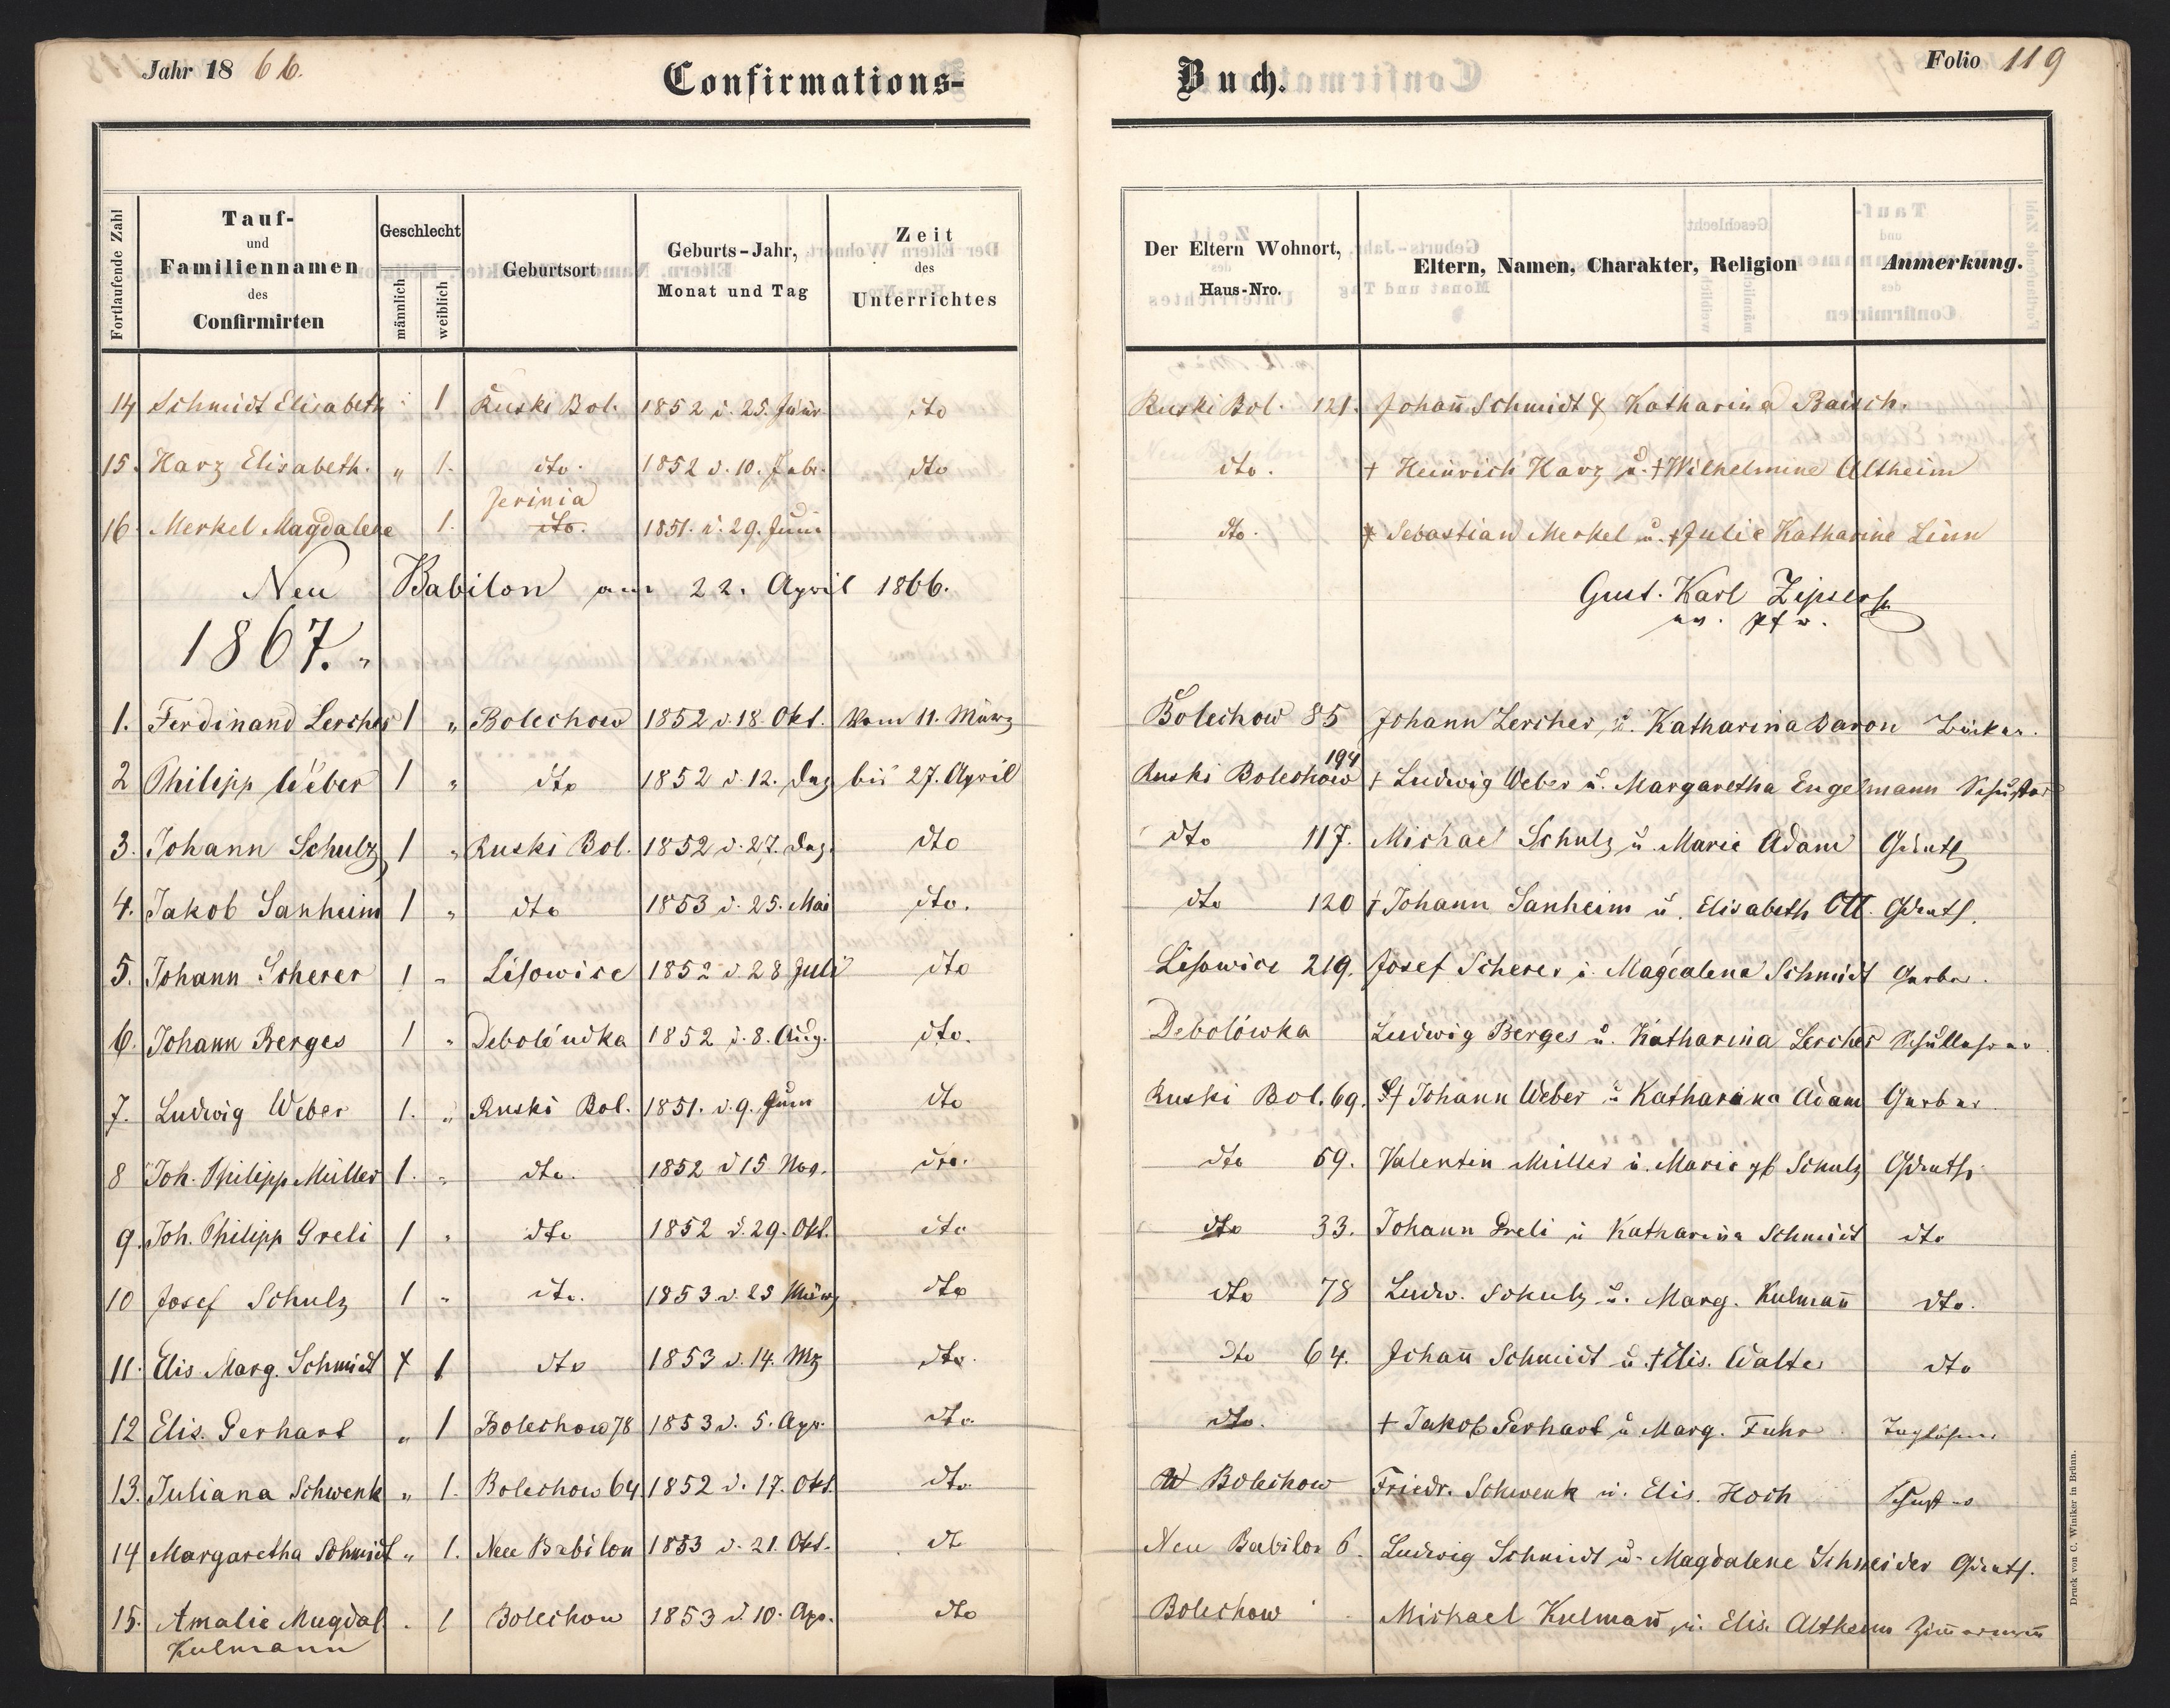 Jahr 1866.
Confirmations-
Buch.
Folio 119
Fortlaufende Zahl
Tauf-
und
Familiennamen
des
Confirmirten
Geschlecht
männlich
weiblich
Geburtsort
Geburts-Jahr,
Monat und Tag
Zeit
des
Unterrichtes
Der Eltern Wohnort,
Haus-Nro.
Eltern, Namen, Charakter, Religion
Anmerkung.
14 Schmidt Elisabeth " 1 Ruski Bol. 1852 d. 25. Jänr dto Ruski Bol. 121. Johañ Schmidt & Katharina Bausch.
15. Harz Elisabeth. " 1. dto. 1852 d. 10. Febr. dto dto. † Heinrich Harz u. † Wilhelmine Altheim
Jerinia
16. Merkel Magdalene 1. dto. 1851. d. 29. Juni dto. Sebastian Merkel u. † Julie Katharine Linn
Neu Babilon am 22. April 1866. Gust. Karl Zipser
ev. Pfr.
1867.
1. Ferdinand Lercher 1 " Bolechow 1852 d. 18. Okt. Vom 11. März Bolechow 85 Johann Lercher u. Katharina Daron Bäcker.
2 Philipp Weber 1 " dto 1852 d. 12. Dez bis 27. April Ruski Bolechow 194 † Ludwig Weber u. Margaretha Engelmann Schuster
3. Johann Schulz 1 " Ruski Bol. 1852 d. 27. Dez. dto dto 117. Michael Schulz u. Marie Adam Grdwth
4. Jakob Sanheim 1 " dto 1853 d. 25. Mai dto. dto 120 † Johann Sanheim u. Elisabeth Ott. Grdwth.
5. Johann Scherer 1 " Lisowice 1852 d. 28 Juli dto Lisowice 219. Josef Scherer u. Magdalena Schmidt Gerber.
6. Johann Berges 1 " Debolówka 1852 d. 8. Aug. dto. Debolówka Ludwig Berges u. Katharina Lercher Schullehrer
7. Ludwig Weber 1. " Ruski Bol. 1851. d. 9. Juni dto Ruski Bol. 69. † Johann Weber u Katharina Adam Gerber
8 Joh. Philipp Müller 1. " dto. 1852 d 15 Nov. dto. dto 59. Valentin Müller u. Marie gb Schulz Grdwth
9. Joh. Philipp Greli 1 " dto 1852 d. 29. Okt. dto dto 33. Johann Greli u Katharina Schmidt dto
10 Josef Schulz 1 " dto. 1853 d. 23 März dto dto 78 Ludw. Schulz u. Marg. Kulmañ dto.
11. Elis Marg. Schmidt 1 dto 1853 d. 14. Mz dto. dto 64. Johañ Schmidt u. † Elis. Walter dto
12 Elis. Gerhart " 1 Bolechow 78 1853 d. 5. Apr. dto. dto. † Jakob Gerhart u Marg. Fuhr Taglöhner
13. Juliana Schwenk " 1. Bolechow 64 1852 d. 17. Okt. dto Bolechow Friedr. Schwenk u. Elis. Hoch Schuster
14 Margaretha Schmidt " 1. Neu Babilon 1853 d. 21. Okt. dt Neu Babilon 6. Ludwig Schmidt u. Magdalene Schneider Grdwth.
15. Amalie Magdal. " 1 Bolechow 1853 d. 10. Apr. dto Bolechow Michael Kulmañ u. Elis. Altheim Zim̄ermañ
Kulmann
Druck von C. Winiker in Brünn.